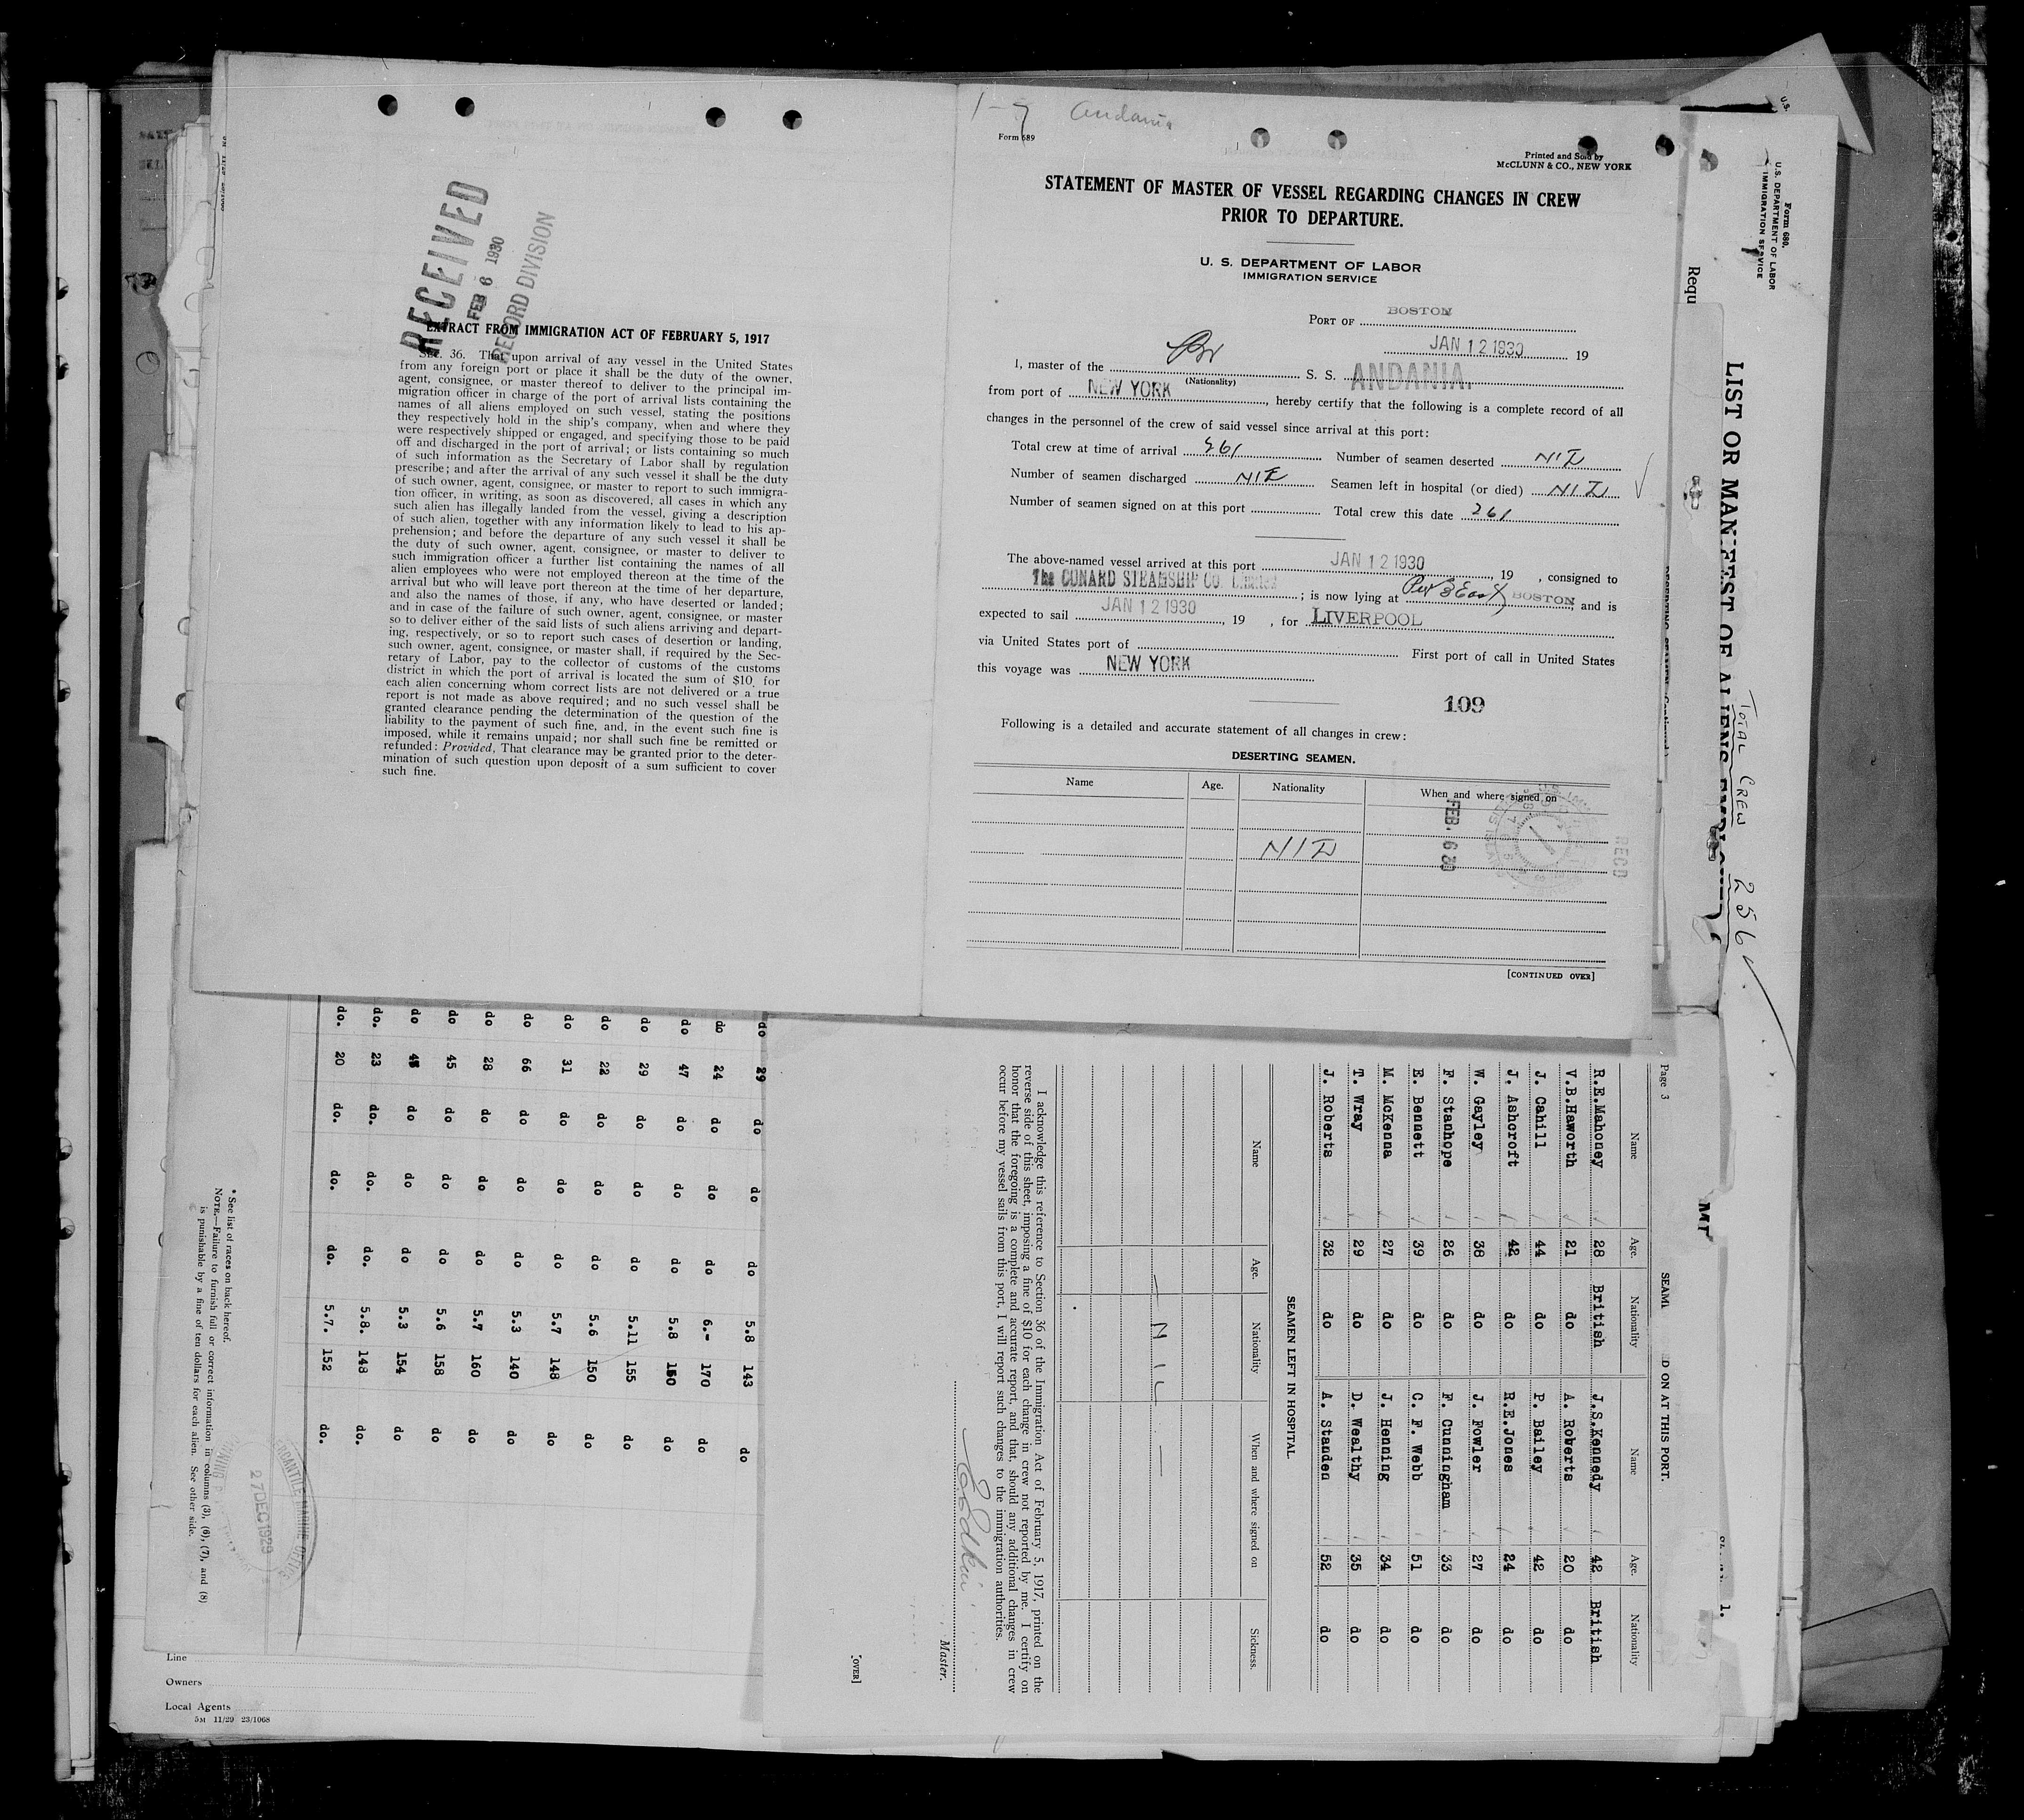 RECEIVED
FEB 6 1930
RECORD DIVISION
EXTRACT FROM IMMIGRATION ACT OF FEBRUARY 5, 1917
SEC. 36. That upon arrival of any vessel in the United States
from any foreign port or place it shall be the duty of the owner,
agent, consignee, or master thereof to deliver to the principal im-
migration officer in charge of the port of arrival lists containing the
names of all aliens employed on such vessel, stating the positions
they respectively hold in the ship's company, when and where they
were respectively shipped or engaged, and specifying those to be paid
off and discharged in the port of arrival; or lists containing so much
of such information as the Secretary of Labor shall by regulation
prescribe; and after the arrival of any such vessel it shall be the duty
of such owner, agent, consignee, or master to report to such immigra-
tion officer, in writing, as soon as discovered, all cases in which any
such alien has illegally landed from the vessel, giving a description
of such alien, together with any information likely to lead to his ap-
prehension; and before the departure of any such vessel it shall be
the duty of such owner, agent, consignee, or master to deliver to
such immigration officer a further list containing the names of all
alien employees who were not employed thereon at the time of the
arrival but who will leave port thereon at the time of her departure,
and also the names of those, if any, who have deserted or landed;
and in case of the failure of such owner, agent, consignee, or master
so to deliver either of the said lists of such aliens arriving and depart-
ing, respectively, or so to report such cases of desertion or landing,
such owner, agent, consignee, or master shall, if required by the Sec-
retary of Labor, pay to the collector of customs of the customs
district in which the port of arrival is located the sum of $10. for
each alien concerning whom correct lists are not delivered or a true
report is not made as above required; and no such vessel shall be
granted clearance pending the determination of the question of the
liability to the payment of such fine, and, in the event such fine is
imposed, while it remains unpaid; nor shall such fine be remitted or
refunded: Provided, That clearance may be granted prior to the deter-
mination of such question upon deposit of a sum sufficient to cover
such fine.
1-7 Andania
Form 689
Printed and Sold by
McCLUNN & CO., NEW YORK
STATEMENT OF MASTER OF VESSEL REGARDING CHANGES IN CREW
PRIOR TO DEPARTURE.
U. S. DEPARTMENT OF LABOR
IMMIGRATION SERVICE
PORT OF BOSTON
JAN 12 1930 19
I, master of the Br S. S. ANDANIA.
(Nationality)
from port of NEW YORK, hereby certify that the following is a complete record of all
changes in the personnel of the crew of said vessel since arrival at this port:
Total crew at time of arrival 261 Number of seamen deserted NIL
Number of seamen discharged NIL Seamen left in hospital (or died) NIL
Number of seamen signed on at this port Total crew this date 261
The above-named vessel arrived at this port JAN 12 1930 19 , consigned to
The CUNARD STEAMSHIP CO. Limited ; is now lying at Pier 3 East BOSTON and is
expected to sail JAN 12 1930, 19 , for LIVERPOOL
via United States port of First port of call in United States
this voyage was NEW YORK
109
Following is a detailed and accurate statement of all changes in crew:
DESERTING SEAMEN.
Name Age. Nationality When and where signed on
NIL
FEB. 6 30
RECD
[CONTINUED OVER]
Form 680.
U.S. DEPARTMENT OF LABOR
IMMIGRATION SERVICE
Requ
LIST OR MANIFEST OF ALIENS
TOTAL CREW 256
Page 3
SEAM ED ON AT THIS PORT.
Name Age. Nationality Name Age. Nationality
R.E.Mahoney 28 British J.S.Kennedy 42 British
V.B.Haworth 21 do A. Roberts 20 do
J. Cahill 44 do P. Bailey 42 do
J. Ashcroft 42 do R.E.Jones 24 do
W. Gayley 38 do J. Fowler 27 do
F. Stanhope 26 do F. Cunningham 33 do
E. Bennett 39 do C. F. Webb 51 do
M. McKenna 27 do J. Henning 34 do
T. Wray 29 do D. Wealthy 35 do
J. Roberts 32 do A. Standen 52 do
SEAMEN LEFT IN HOSPITAL.
Name Age. Nationality When and where signed on Sickness.
— NIL —
I acknowledge this reference to Section 36 of the Immigration Act of February 5, 1917, printed on the
reverse side of this sheet, imposing a fine of $10 for each change in crew not reported by me. I certify on
honor that the foregoing is a complete and accurate report, and that, should any additional changes in crew
occur before my vessel sails from this port, I will report such changes to the immigration authorities.
, Master.
[OVER]
do 29 do do do 5.8 143 do
do 24 do do do 6.- 170 do
do 47 do do do 5.8 150 do
do 29 do do do 5.11 155 do
do 22 do do do 5.6 150 do
do 31 do do do 5.7 148 do
do 66 do do do 5.3 140 do
do 28 do do do 5.7 160 do
do 45 do do do 5.6 158 do
do 45 do do do 5.3 154 do
do. 23 do. do. do. 5.8. 148 do.
do. 20 do. do. do. 5.7. 152 do.
* See list of races on back hereof.
NOTE.—Failure to furnish full or correct information in columns (3), (6), (7), and (8)
is punishable by a fine of ten dollars for each alien. See other side.
MERCANTILE MARINE OFFICE
27 DEC 1929
Line
Owners
Local Agents
5M 11/29 23/1068